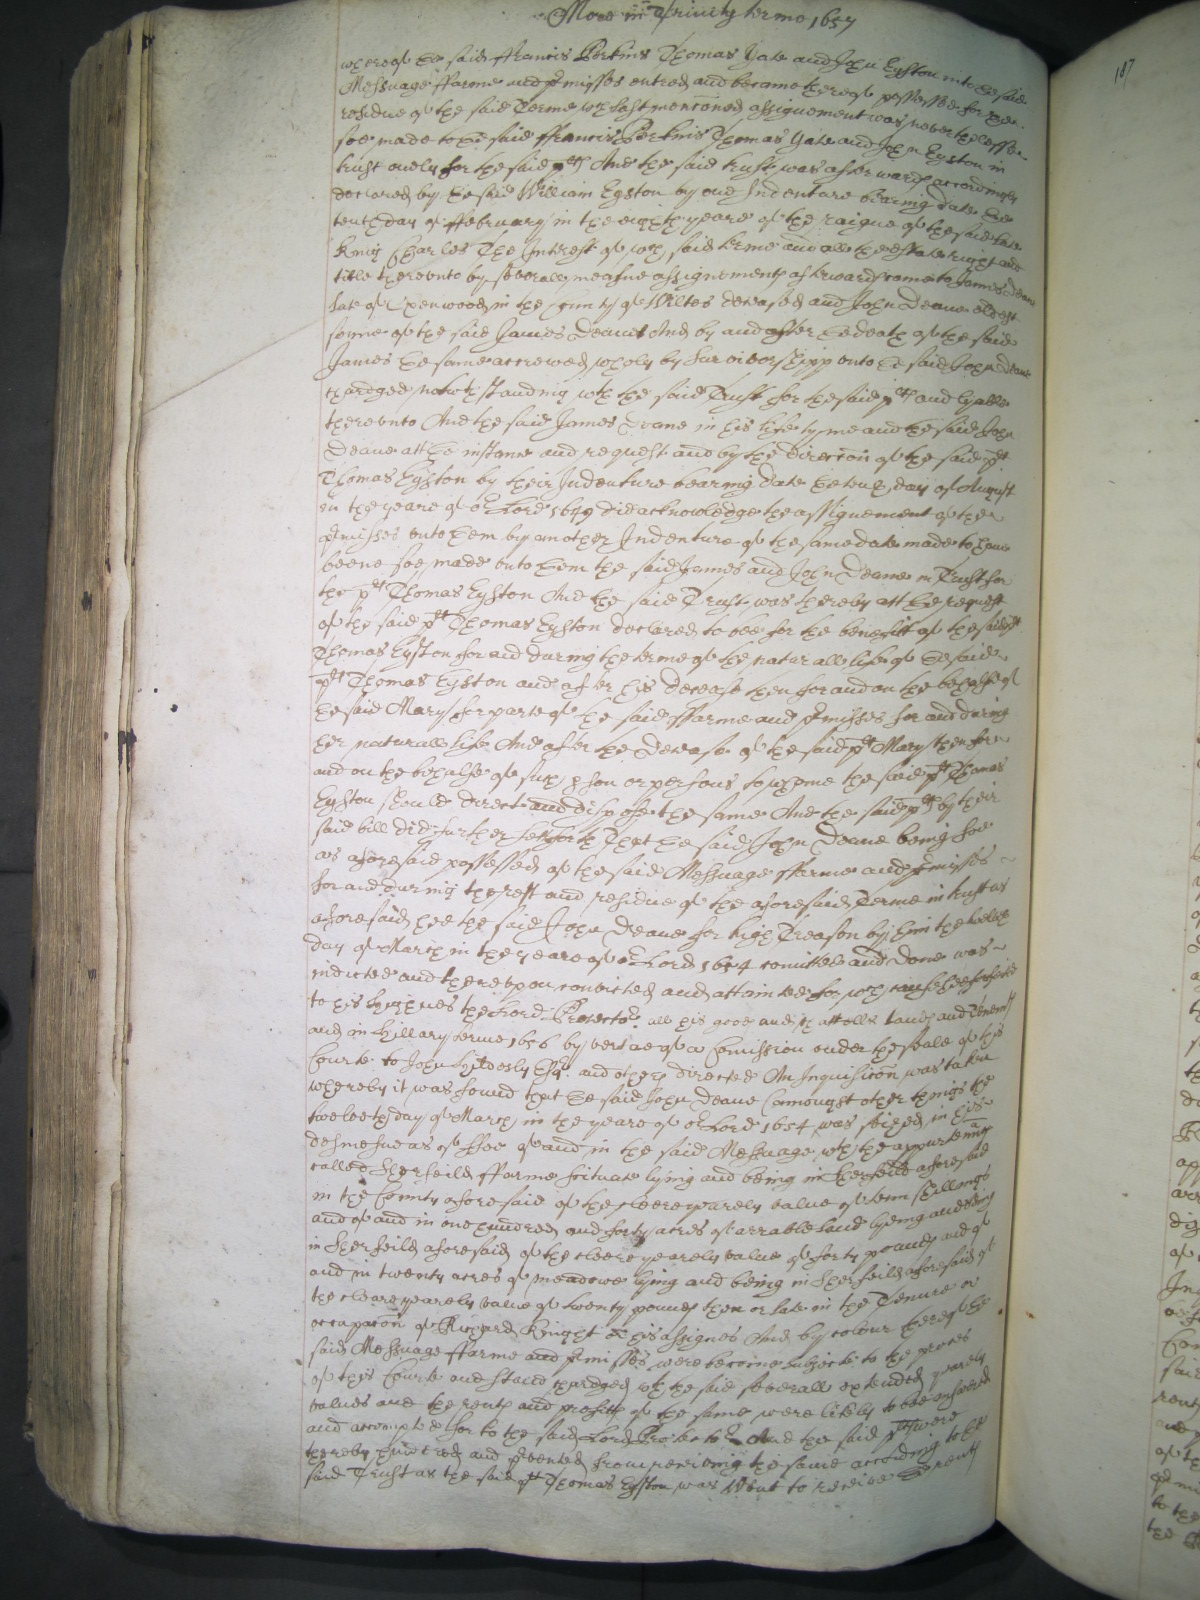 More in Trinity terme 1657
whereof the said ffrancis Perkins Thomas Yate and John Eyston into the said
Messuage ffarme and p'misses entred and became thereof possessed for the
residue of the said Terme wch last menconed assignement was neverthelesse
soe made to the said ffrancis Perkins Thomas Yate and John Eyston in
trust onely for the said plts And the said trust was afterwards accordingly
declared by the said William Eyston by one Indenture bearing date the
tenth day of ffebruary in the eighth yeare of the raigne of the said late
King Charles The Interest of wch said terme and all the estate right and
title thereunto by severall measne assignements afterwards came to James Deane
late of in the County of Wiltes deceased and John Deane eldest
sonne of the said James Deane And by and after the death of the said
James the same accrewed wholy by survivorshipp unto the said John Deane
chardged notwthstanding wth the said Trust for the said plts and lyable
thereunto And the said James Deane in his life tyme and the said John
Deane att the instance and request and by the direccon of the said plt
Thomas Eyston by their Indenture bearing date the tenth day of August
in the yeare of or Lord 1649 did acknowledge the assignement of the
p'misses unto them by another Indenture of the same date made to have
beene soe made unto them the said James and John Deane in Trust for
the plt Thomas Eyston And the said Trust was thereby att the request
of the said plt Thomas Eyston declared to bee for the benefitt of the said plt
Thomas Eyston for and during the terme of the naturall life of the said
plt Thomas Eyston and after his decease then for and on the behalfe of
the said Mary for parte of the said ffarme and p'misses for and during
her naturall life And after the decease of the said plt Mary then for
and on the behalfe of such p'son or persons to whome the said plt Thomas
Eyston should direct and dispose the same And the said plts by their
said bill did further sett forth That the said John Deane being soe
as aforesaid possessed of the said Messuage ffarme and p'misses
for and during the rest and residue of the aforesaid Terme in trust as
aforesaid hee the said John Deane for high Treason by him the twelveth
day of March in the yeare of or Lord 1654 comitted and done was
indicted and thereupon convicted and attainted for wch cause hee forfeited
to his highnes the Lord Protector all his goods and chattells lands and tenemts
and in Hillary terme 1656 by vertue of a Comission under the seale of this
Courte to John Hildesly Esqr and others directed An Inquisicon was taken
whereby it was found that the said John Deane (amongst other things) the
twelveth day of March in the yeare of or Lord 1654 was seized in his
demesne as of ffee of and in the said Messuage wth the appurtenncs
called Sherfeild ffarme scituate lying and being in Sherfeild aforesaid
in the County aforesaid of the cleere yearely value of tenn shillings
and of and in one hundred and forty acres of arrable land lyeing and being
in Sherfeild aforesaid of the cleere yearely value of forty pounds and of
and in twenty acres of meadowe lying and being in Sherfeild aforesaid of
the cleare yearely value of twenty pounds then or late in the Tenure or
occupacon of Richard Knight or his assignes And by colour thereof the
said Messuage ffarme and p'misses were become subjecte to the proces
of this Courte and stand chardged wth the said severall extended yearely
values and the rents and profitts of the same were likely to bee answered
and accompted for to the said Lord Protector And the said plts were
thereby hindred and p'vented from receiving the same according to the
said Trust as the said plt Thomas Eyston was wont to receive the rents
187